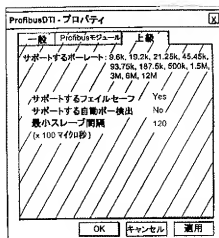 ProfibusDTI - プロパティ
一般 Profibusモジュール 上級
サポートするボーレート: 9.6k, 19.2k, 21.25k, 45.45k,
93.75k, 187.5k, 500k, 1.5M,
3M, 6M, 12M
サポートするフェイルセーフ Yes
サポートする自動ボー検出 No
最小スレーブ間隔 120
(x 100マイクロ秒)
OK キャンセル 適用